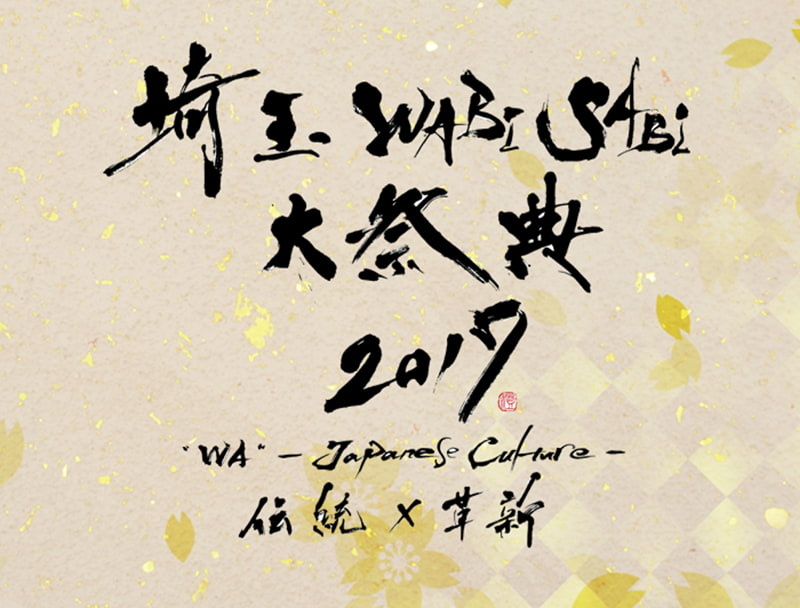 埼玉 WABI SABI
大祭典
2017
"WA" - Japanese Culture -
伝統 × 革新